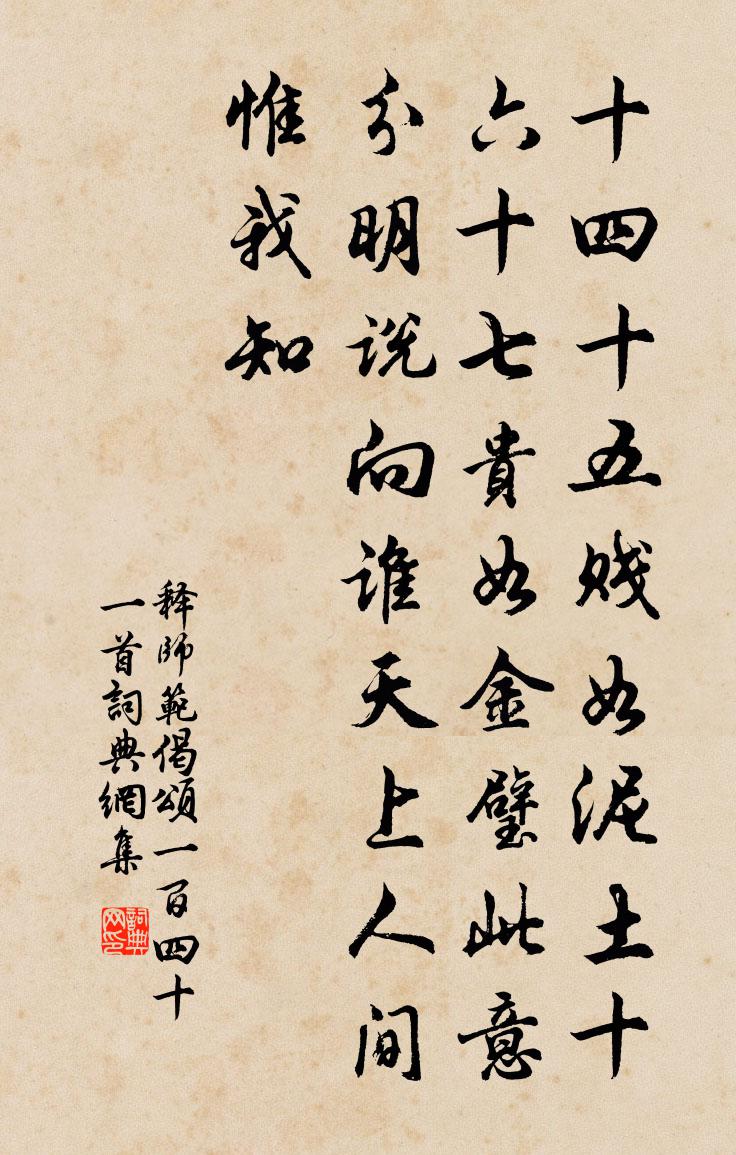 十四十五贱如泥土十
六十七貴如金璧此意
分明说向谁天上人间
惟我知
释師範偈頌一百四十
一首詞典網集
詞典网印